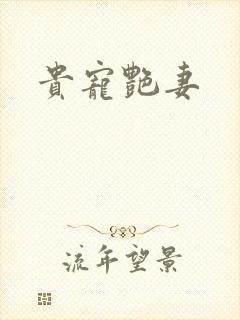 貴寵艷妻
流年望景